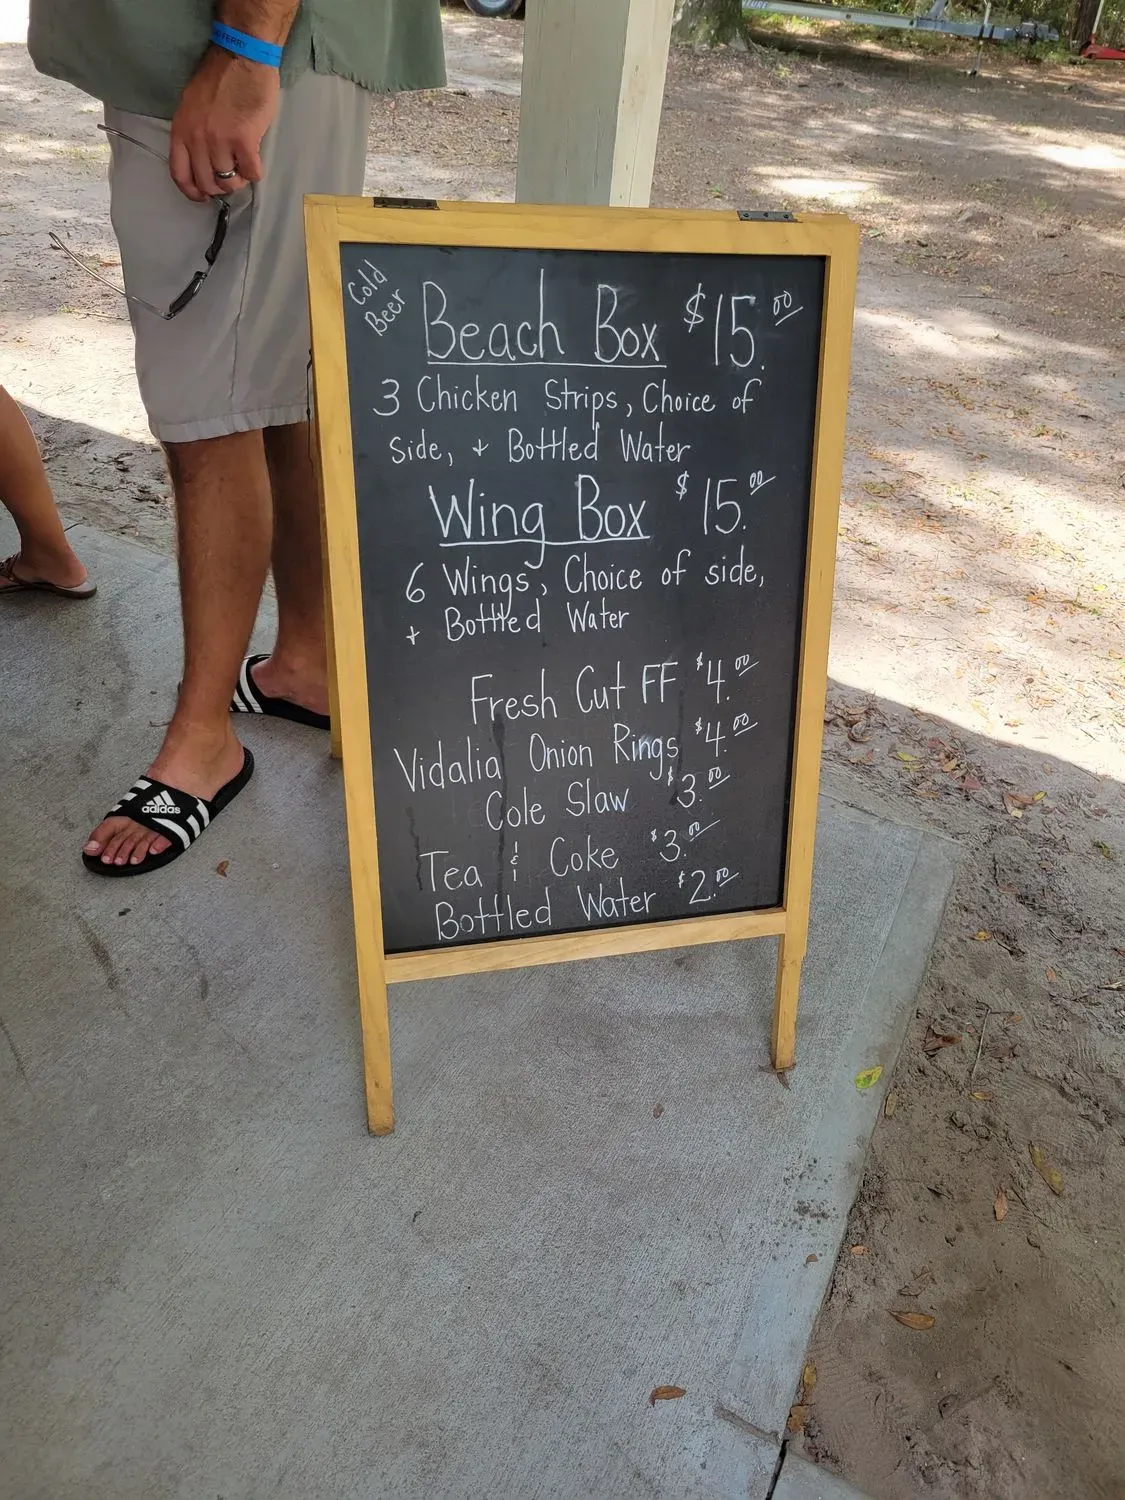 FERRY
TURE
Cold
Beer
Beach Box $15.00
3 Chicken Strips, Choice of
Side, + Bottled Water
Wing Box $15.00
6 Wings, Choice of side,
+ Bottled Water
Fresh Cut FF $4.00
Vidalia Onion Rings $4.00
Cole Slaw $3.00
Tea & Coke $3.00
Bottled Water $2.00
adidas